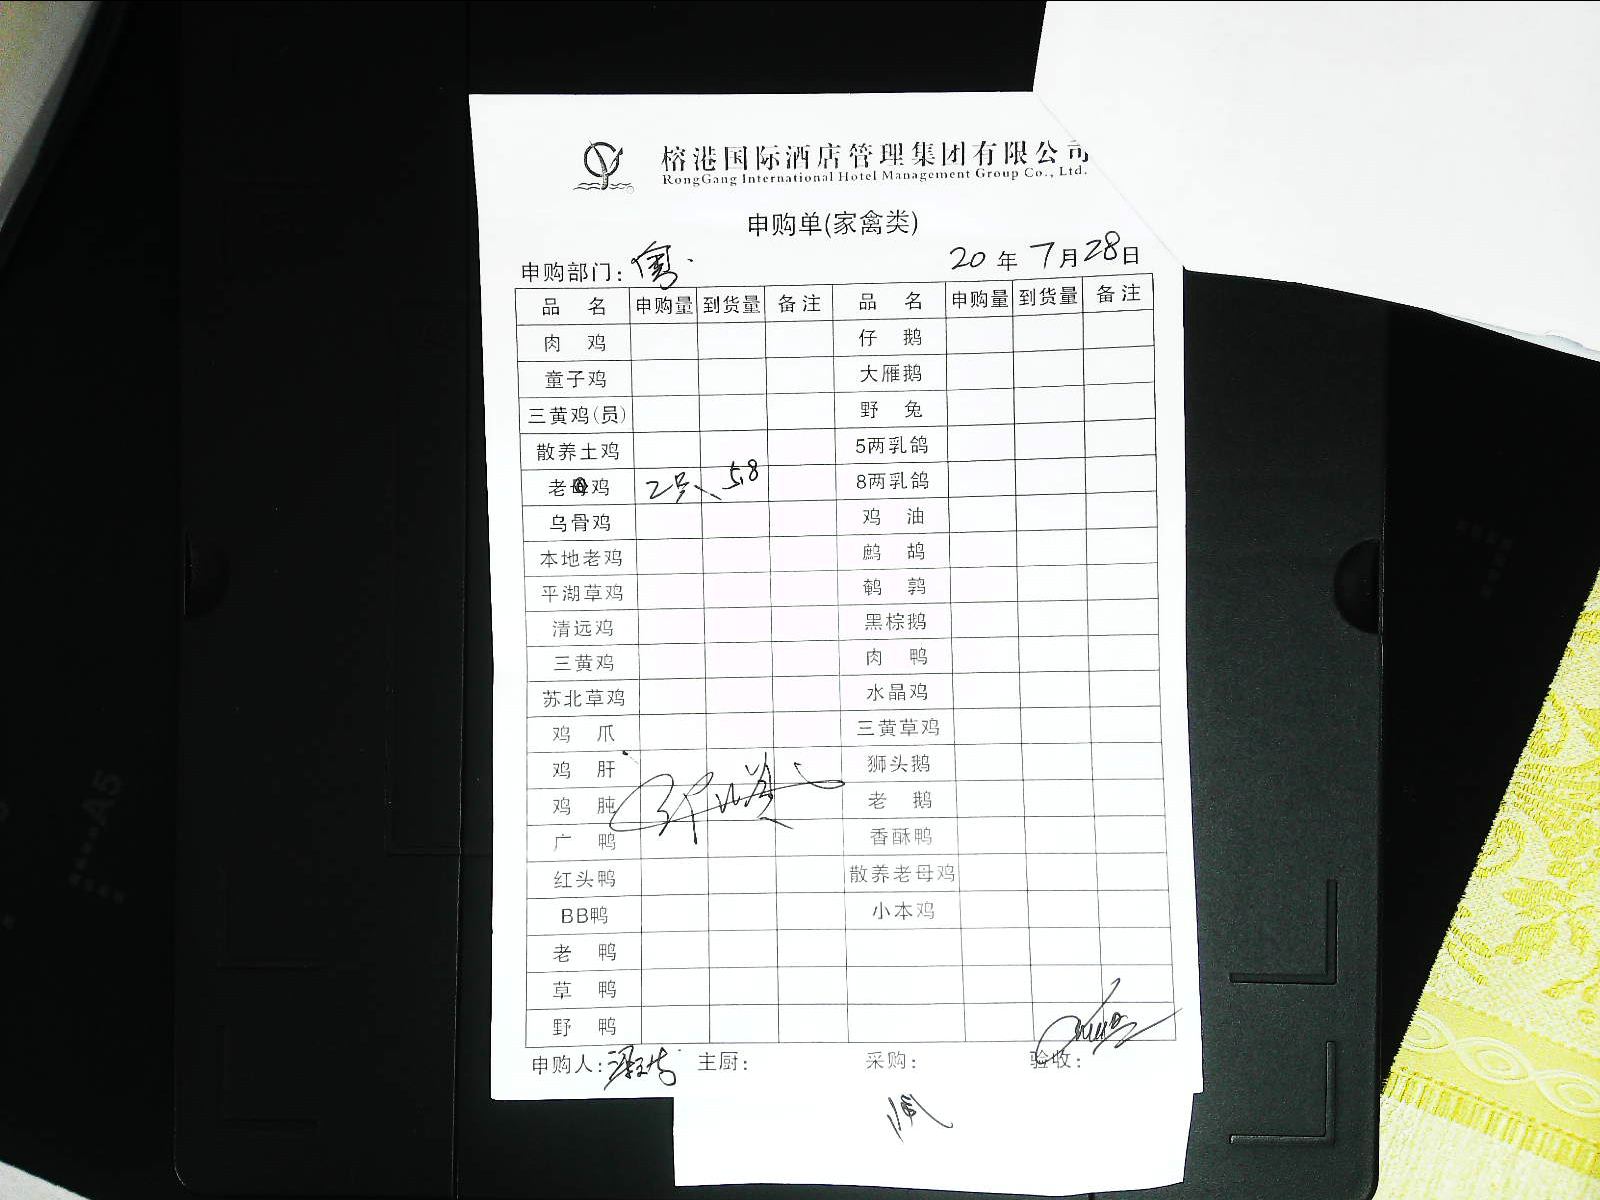 榕港国际酒店管理集团有限公司
RongGang International Hotel Management Group Co., Ltd.
申购单(家禽类)
申购部门: 20 年 7 月 28 日
品 名 申购量 到货量 备注 品 名 申购量 到货量 备注
肉 鸡 仔 鹅
童子鸡 大雁鹅
三黄鸡(员) 野 兔
散养土鸡 5两乳鸽
老母鸡 2只 5.8 8两乳鸽
乌骨鸡 鸡 油
本地老鸡 鹧 鸪
平湖草鸡 鹌 鹑
清远鸡 黑棕鹅
三黄鸡 肉 鸭
苏北草鸡 水晶鸡
鸡 爪 三黄草鸡
鸡 肝 狮头鹅
鸡 肫 老 鹅
广 鸭 香酥鸭
红头鸭 散养老母鸡
BB鸭 小本鸡
老 鸭
草 鸭
野 鸭
申购人: 主厨: 采购: 验收: